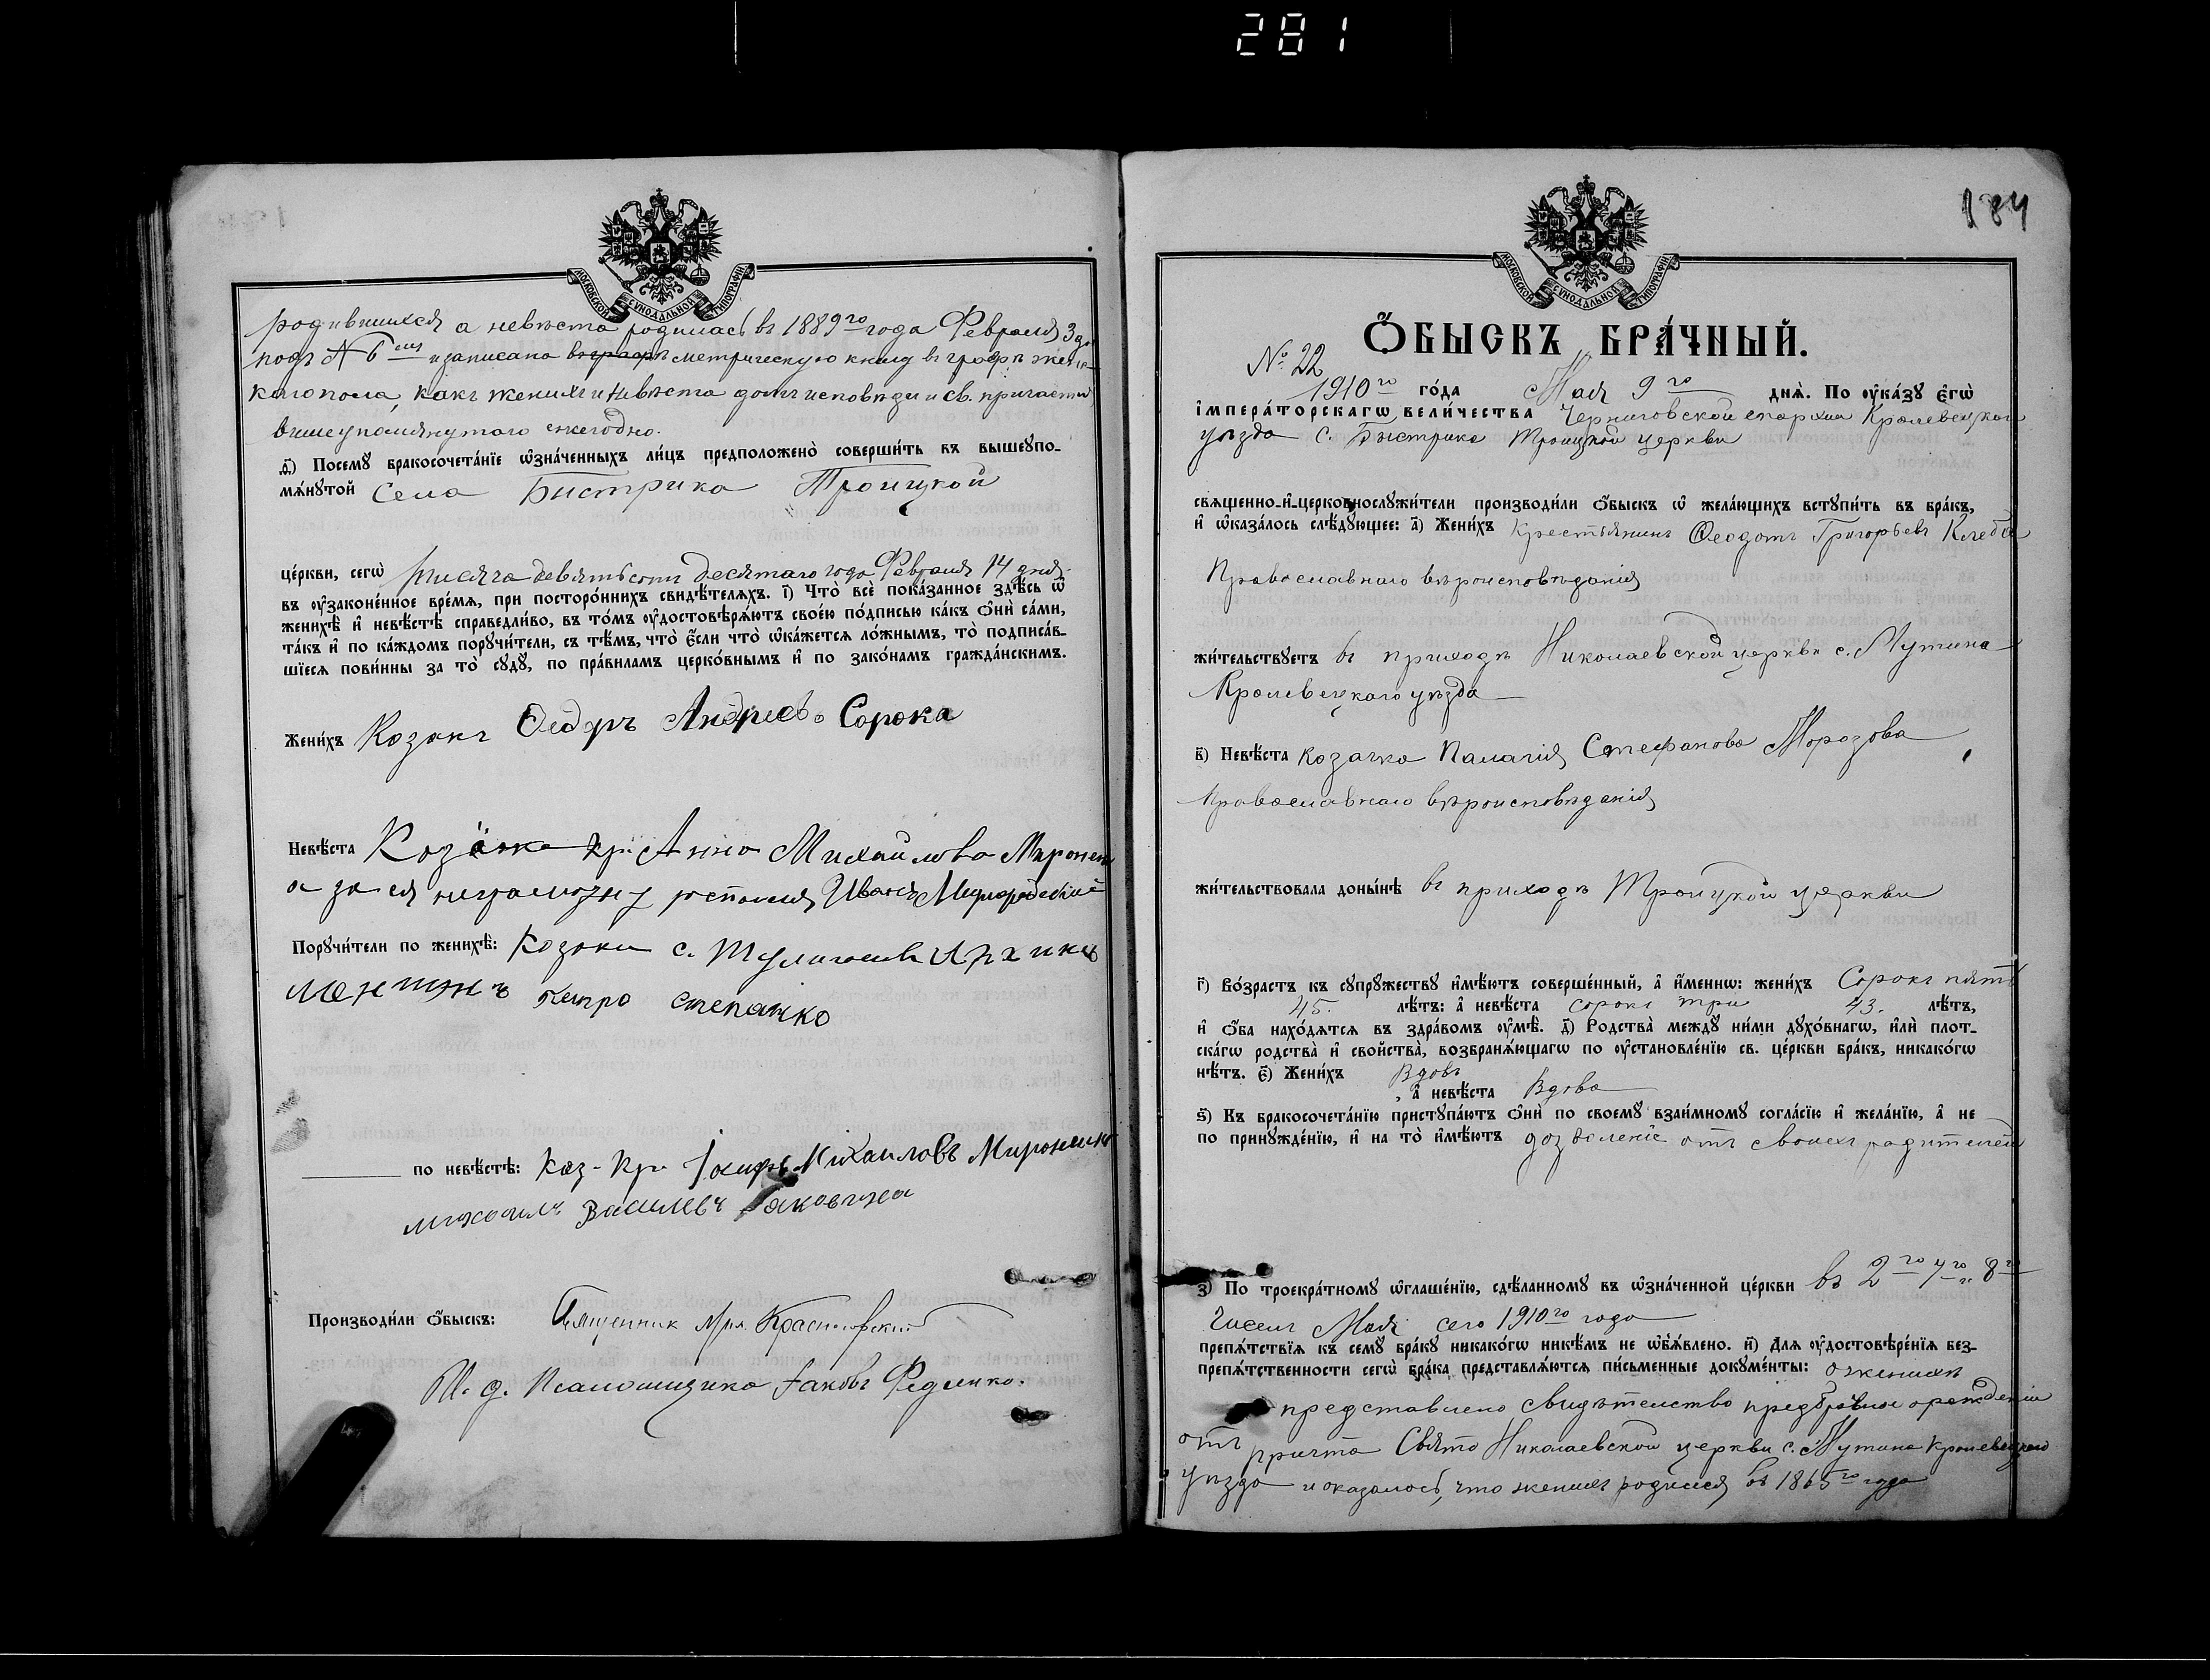 281
МОСКОВСКОЙ СѴНОДАЛЬНОЙ ТИПОГРАФІИ
родившихся а невѣста родилась въ 1889го года Февраля 3 дн
подъ № 6 и записана въ графѣ метрическую книгу въ графѣ женс
каго пола, какъ женихъ и невѣста долгъ исповѣди и св. причастія
вышеупомянутаго ежегодно.
ѳ҃) Посемꙋ бракосочета́нїе ѡ҆зна́ченныхъ ли́цъ предположено̀ соверши́ть въ вышеꙋпо-
мѧ́нꙋтой села Бистрика Троицкой
це́ркви, сегѡ̀ тисяча девятьсотъ десятаго года Февраля 14 дня.
въ ᲂу҆зако́ненное вре́мѧ, при посторо́ннихъ свидѣ́телѧхъ. і҃) Что̀ всѐ пока́занное здѣ́сь ѡ҆
женихѣ̀ и҆ невѣ́стѣ справедли́во, въ то́мъ ᲂу҆достовѣрѧ́ютъ свое́ю по́дписью ка́къ ѻ҆нѝ са́ми,
та́къ и҆ по ка́ждомъ порꙋчи́тели, съ тѣ́мъ, что̀ є҆́сли что̀ ѡ҆ка́жетсѧ ло́жнымъ, то̀ подписа́в-
шїесѧ пови́нны за то̀ сꙋдꙋ̀, по пра́виламъ церко́внымъ и҆ по зако́намъ гражда́нскимъ.
Жени́хъ Козакъ Ѳедоръ Андреевъ Сорока
Невѣ́ста Козачка Анна Михайлова Миронен
а за ея неграмотну Иванъ
Порꙋчи́тели по женихѣ̀: Козаки с. Тулиголовъ
Петро Степанко
по невѣ́стѣ: Каз- Кр. Михаиловъ Мироненко
Михаилъ Василевъ Яковина
Производи́ли ѻ҆́быскъ: Священник Красновский
И. д. Псаломщика Іаковъ Феденко.
184
МОСКОВСКОЙ СѴНОДАЛЬНОЙ ТИПОГРАФІИ
Ѻ҆́БЫСКЪ БРА́ЧНЫЙ.
№ 22
1910го го́да Мая 9го днѧ̀. По ᲂу҆ка́зꙋ є҆гѡ̀
і҆мпера́торскагѡ вели́чества Черниговской епархіи Кролевецкаго
уѣзда с. Быстрика Троицкой церкви
свѧщенно-и҆-церковнослꙋжи́тели производи́ли ѻ҆́быскъ ѡ҆ жела́ющихъ встꙋпи́ть въ бра́къ,
и҆ ѡ҆каза́лось слѣ́дꙋющее: а҃) Жени́хъ Крестьянинъ Ѳеодотъ Григорьевъ Клеба
Православнаго вѣроисповѣданія
жи́тельствꙋетъ въ приходѣ Николаевской церкви с. Мутина
Кролевецкаго уѣзда
в҃) Невѣ́ста козачка Палагія Стефанова Морозова
Православнаго вѣроисповѣданія
жи́тельствовала доны́нѣ въ приходѣ Троицкой церкви
г҃) Во́зрастъ къ сꙋпрꙋжествꙋ и҆мѣ́ютъ соверше́нный, а҆ и҆́меннѡ: жени́хъ Сорокъ пять
45. лѣ́тъ: а҆ невѣ́ста сорокъ три 43. лѣ́тъ,
и҆ ѻ҆́ба нахо́дѧтсѧ въ здра́вомъ ᲂу҆мѣ̀. д҃) Родства̀ междꙋ ни́ми дꙋхо́внагѡ, и҆лѝ плот-
ска́гѡ родства̀ и҆ сво́йства, возбранѧ́ющагѡ по ᲂу҆становле́нїю св. це́ркви бра́къ, никако́гѡ
нѣ́тъ. є҃) Жени́хъ Вдовъ
, а҆ невѣ́ста Вдова
ѕ҃) Къ бракосочета́нїю пристꙋпа́ютъ ѻ҆нѝ по своемꙋ̀ взаи́мномꙋ согла́сїю и҆ жела́нїю, а҆ не
по принꙋжде́нїю, и҆ на то̀ и҆мѣ́ютъ дозволеніе отъ своихъ родителей
з҃) По троекра́тномꙋ ѡ҆глаше́нїю, сдѣ́ланномꙋ въ ѡ҆зна́ченной це́ркви въ 2го 7го и 8го
чиселъ Мая сего 1910го года
препѧ́тствїѧ къ семꙋ̀ бра́кꙋ никако́гѡ никѣ́мъ не ѡ҆б̾ѧ́влено. и҃) Длѧ ᲂу҆достовѣре́нїѧ без-
препѧ́тственности сегѡ̀ бра́ка представлѧ́ютсѧ пи́сьменные докꙋме́нты: о женихѣ
представлено свидѣтельство предбрачное о рожденіи
отъ причта Свято Николаевской церкви с. Мутина Кролевецкаго
уѣзда и оказалось, что женихъ родился въ 1865го года